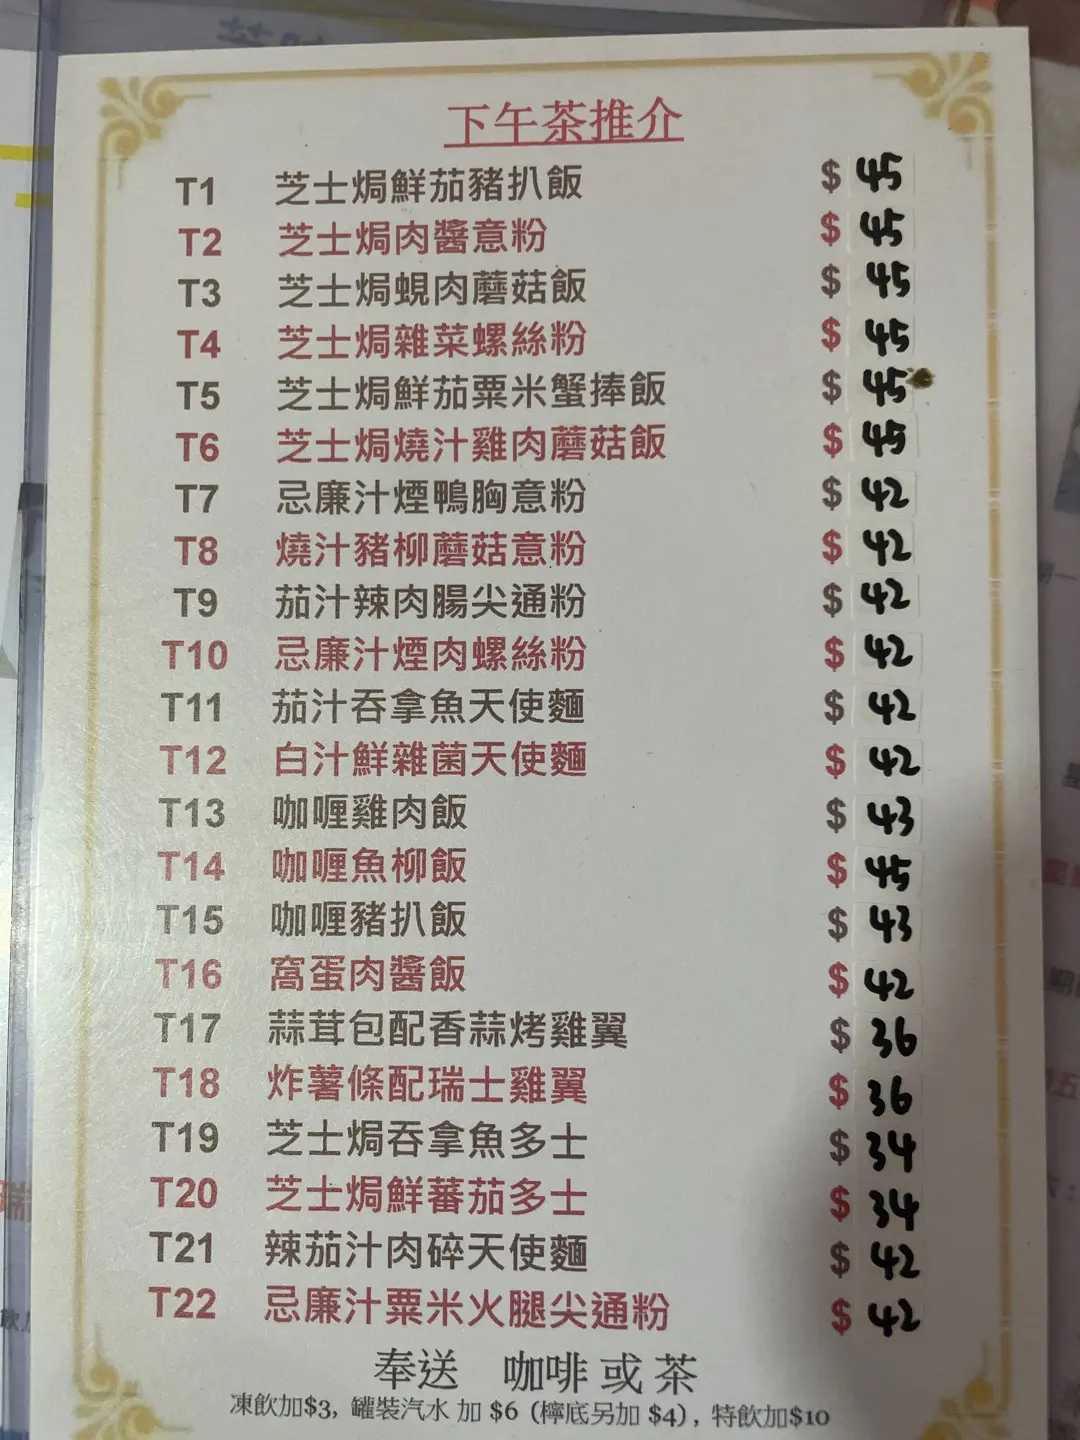 下午茶推介
T1 芝士焗鮮茄豬扒飯 $ 45
T2 芝士焗肉醬意粉 $ 45
T3 芝士焗蜆肉蘑菇飯 $ 45
T4 芝士焗雜菜螺絲粉 $ 45
T5 芝士焗鮮茄粟米蟹捧飯 $ 45
T6 芝士焗燒汁雞肉蘑菇飯 $ 45
T7 忌廉汁煙鴨胸意粉 $ 42
T8 燒汁豬柳蘑菇意粉 $ 42
T9 茄汁辣肉腸尖通粉 $ 42
T10 忌廉汁煙肉螺絲粉 $ 42
T11 茄汁吞拿魚天使麵 $ 42
T12 白汁鮮雜菌天使麵 $ 42
T13 咖喱雞肉飯 $ 43
T14 咖喱魚柳飯 $ 45
T15 咖喱豬扒飯 $ 43
T16 窩蛋肉醬飯 $ 42
T17 蒜茸包配香蒜烤雞翼 $ 36
T18 炸薯條配瑞士雞翼 $ 36
T19 芝士焗吞拿魚多士 $ 34
T20 芝士焗鮮蕃茄多士 $ 34
T21 辣茄汁肉碎天使麵 $ 42
T22 忌廉汁粟米火腿尖通粉 $ 42
奉送 咖啡 或 茶
凍飲加$3, 罐裝汽水 加 $6 (檸底另加 $4), 特飲加$10